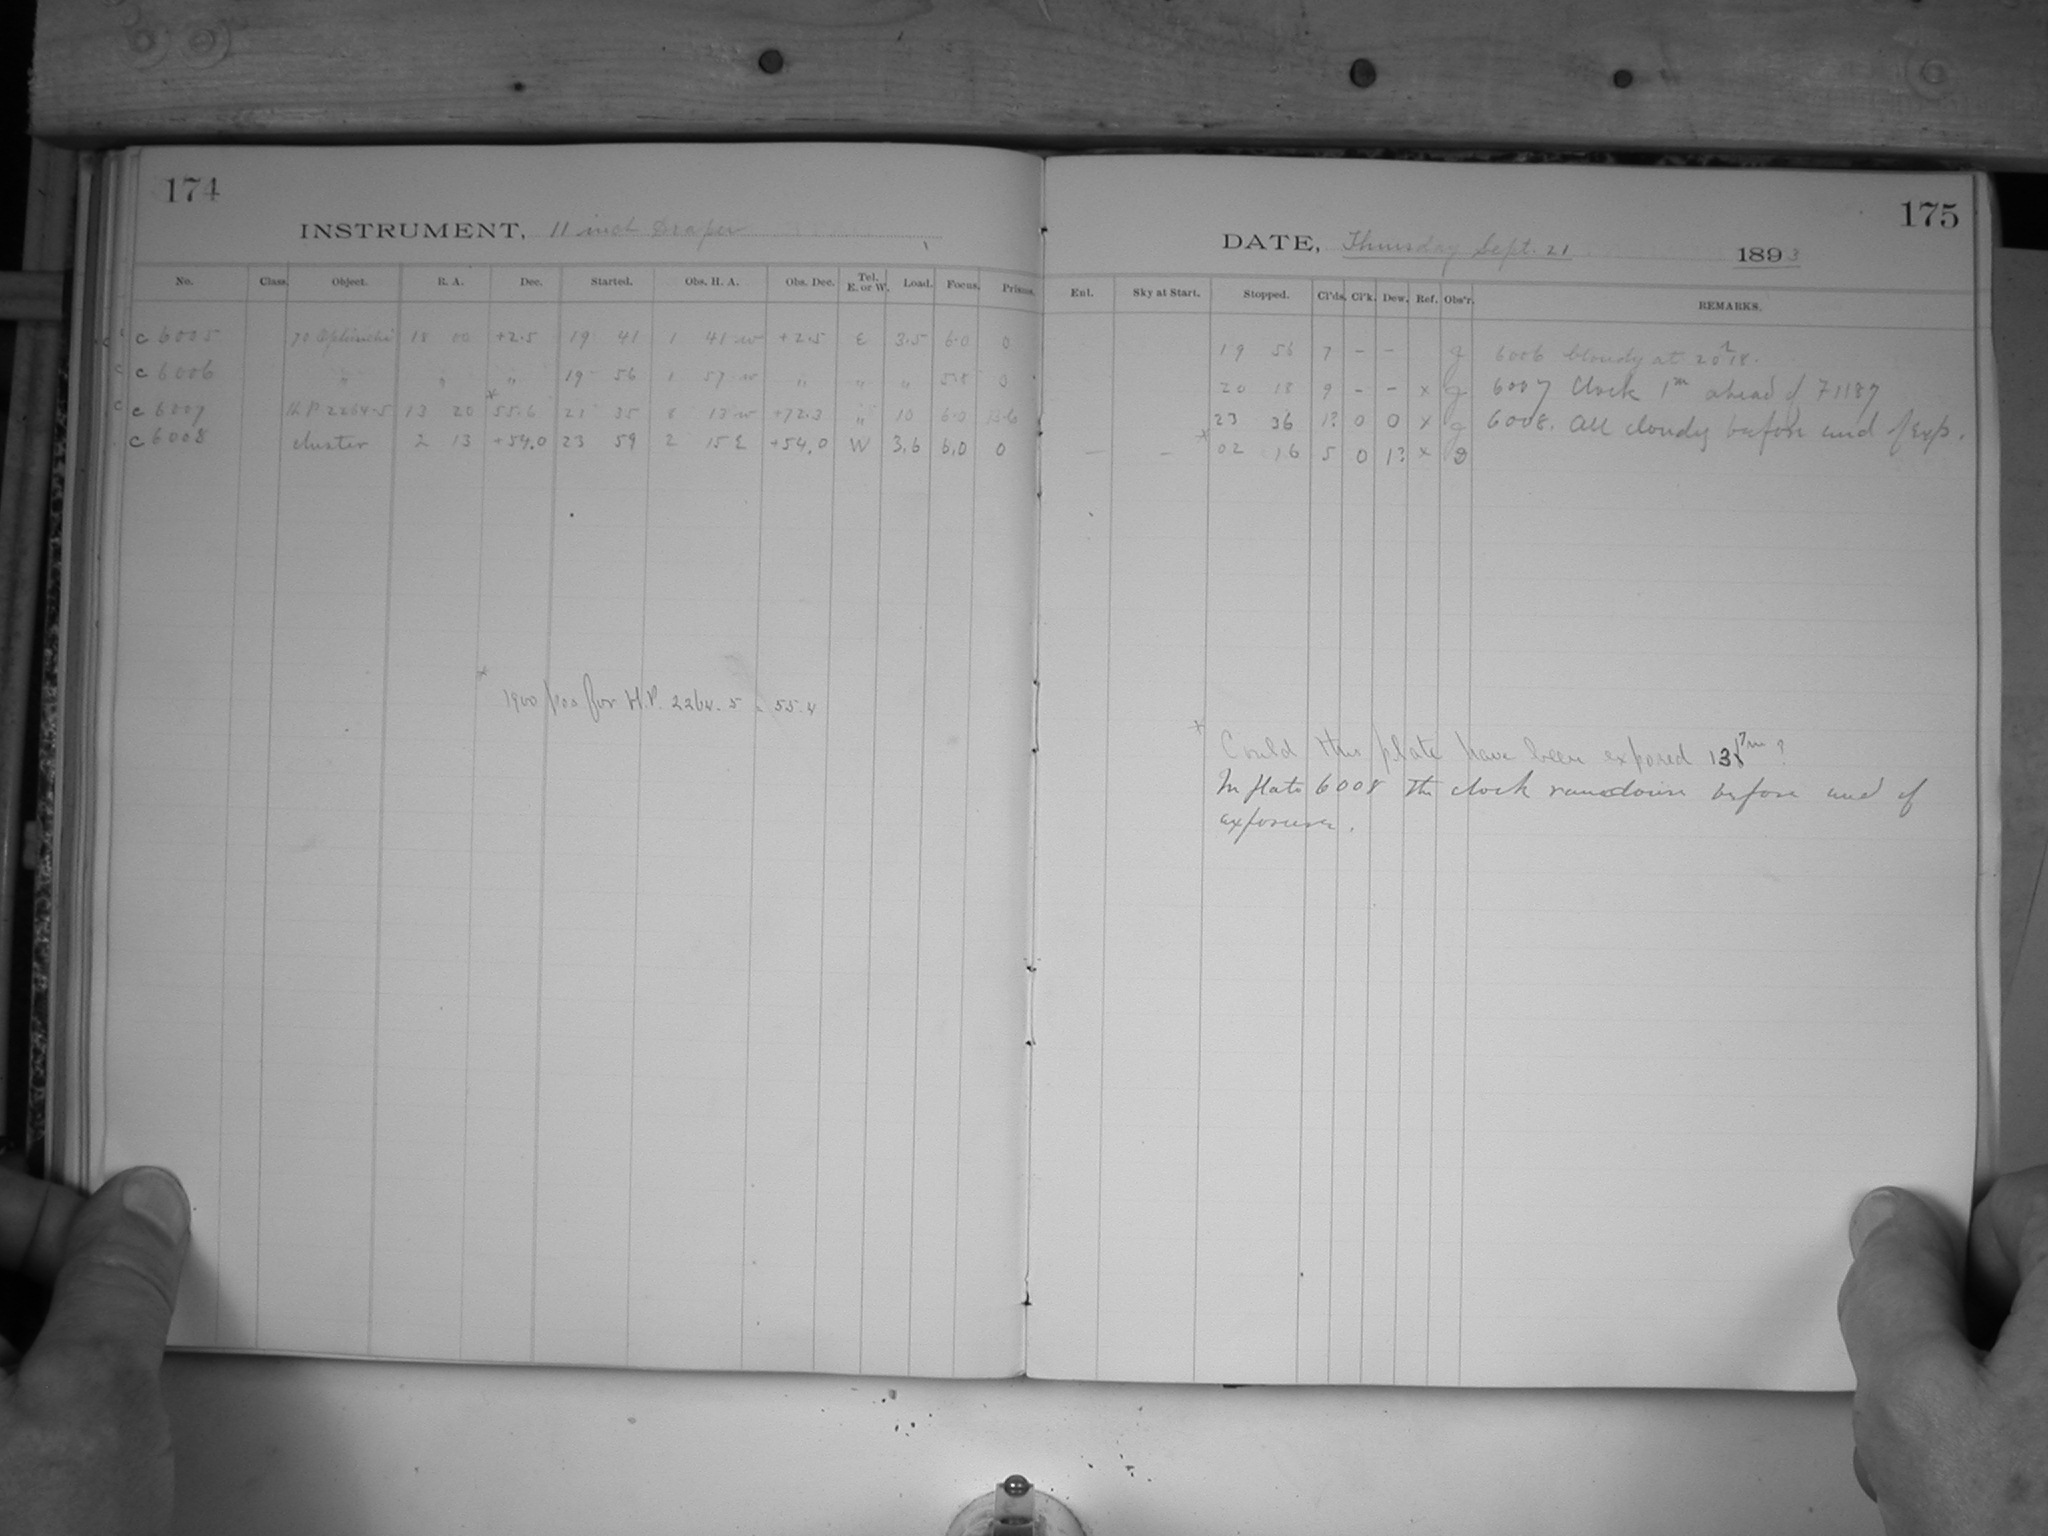 174
INSTRUMENT, 11 inch Draper
No. Class. Object. R. A. Dec. Started. Obs. H. A. Obs. Dec. Tel. E. or W. Load. Focus. Prisms.
c 6005 70 Ophiuchi 18 00 +2.5 19 41 1 41 w +2.5 E 3.5 6.0 0
c 6006 " " " 19 56 1 57 w " " " 5.8 0
c 6007 H.P. 2264-5 13 20 * 55.6 21 35 8 13 w +72.3 " 10 6.0
c 6008 cluster 2 13 +54.0 23 59 2 15 E +54.0 W 3.6 6.0 0
* 1900 pos for H.P. 2264-5 = 55.4
175
DATE, Thursday Sept. 21 1893
Enl. Sky at Start. Stopped. Cl'ds. Cl'k. Dew. Ref. Obs'r. REMARKS.
19 56 7 - - g 6006 cloudy at 20h 18.
20 18 9 - - x g 6007 Clock 1m ahead of 71187
23 36 1? 0 0 x g 6008. All cloudy before end of exp.
— – * 02 16 5 0 1? x
* Could this plate have been exposed 137m?
In plate 6008 the clock ran down before end of
exposure.